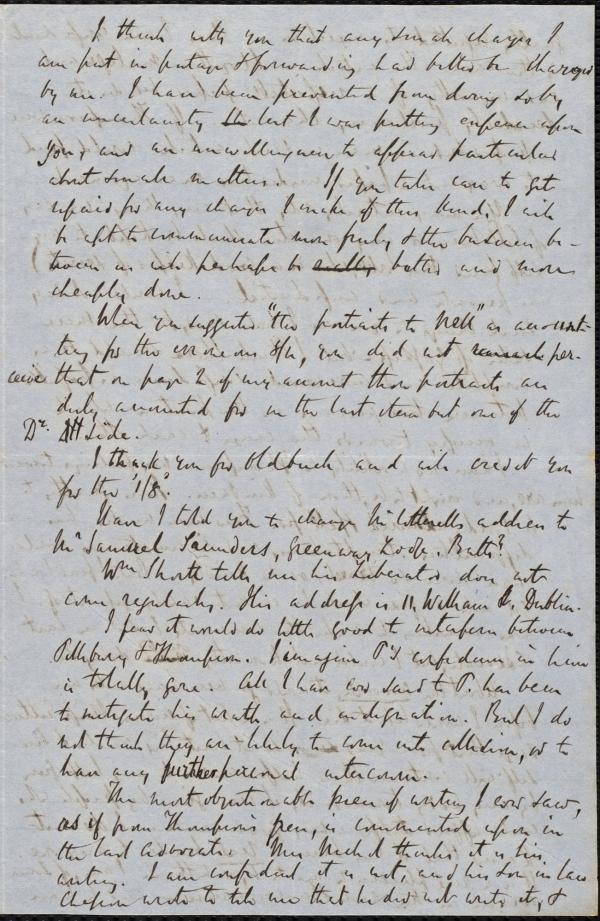 I think with you that any small charges I
am put in postage & forwarding had better be charged
by me. I have been prevented from doing so by
an uncertainty lest I was putting expense upon
you, and an unwillingness to appear particular
about small matters. If you take care to get
repaid for any charges I make of this kind, I will
be apt to communicate more freely & the business be-
tween us will perhaps be really better and more
cheaply done.
When you suggested "the portraits to Nell" as account-
ing for the erroneous, you did not remark per-
ceive that on page 2 of my account these portraits are
duly accounted for in the last item but one of the
Dr. side.
I thank you for Oldbuck and will credit you
for the 1/8.
Have I told you to change Mr Cotterell's address to
Mr Samuel Saunders, Greenway Lodge, Bath?
Wm Shortt tells me his Liberator does not
come regularly. His address is 11 William St. Dublin.
I fear it would do little good to interfere between
Pillsbury & Thompson. I imagine P's confidence in him
is totally gone. All I have ever said to P. has been
to mitigate his wrath and indignation. But I do
not think they are likely to come into collision, or to
have any further personal intercourse.
The most objectionable piece of writing I ever saw,
as if from Thompson's pen, is commented upon in
the last Advocate. Mrs Michel thinks it is his
writing. I am confident it is not, and his son in law
Chesson wrote to tell me that he did not write it, &